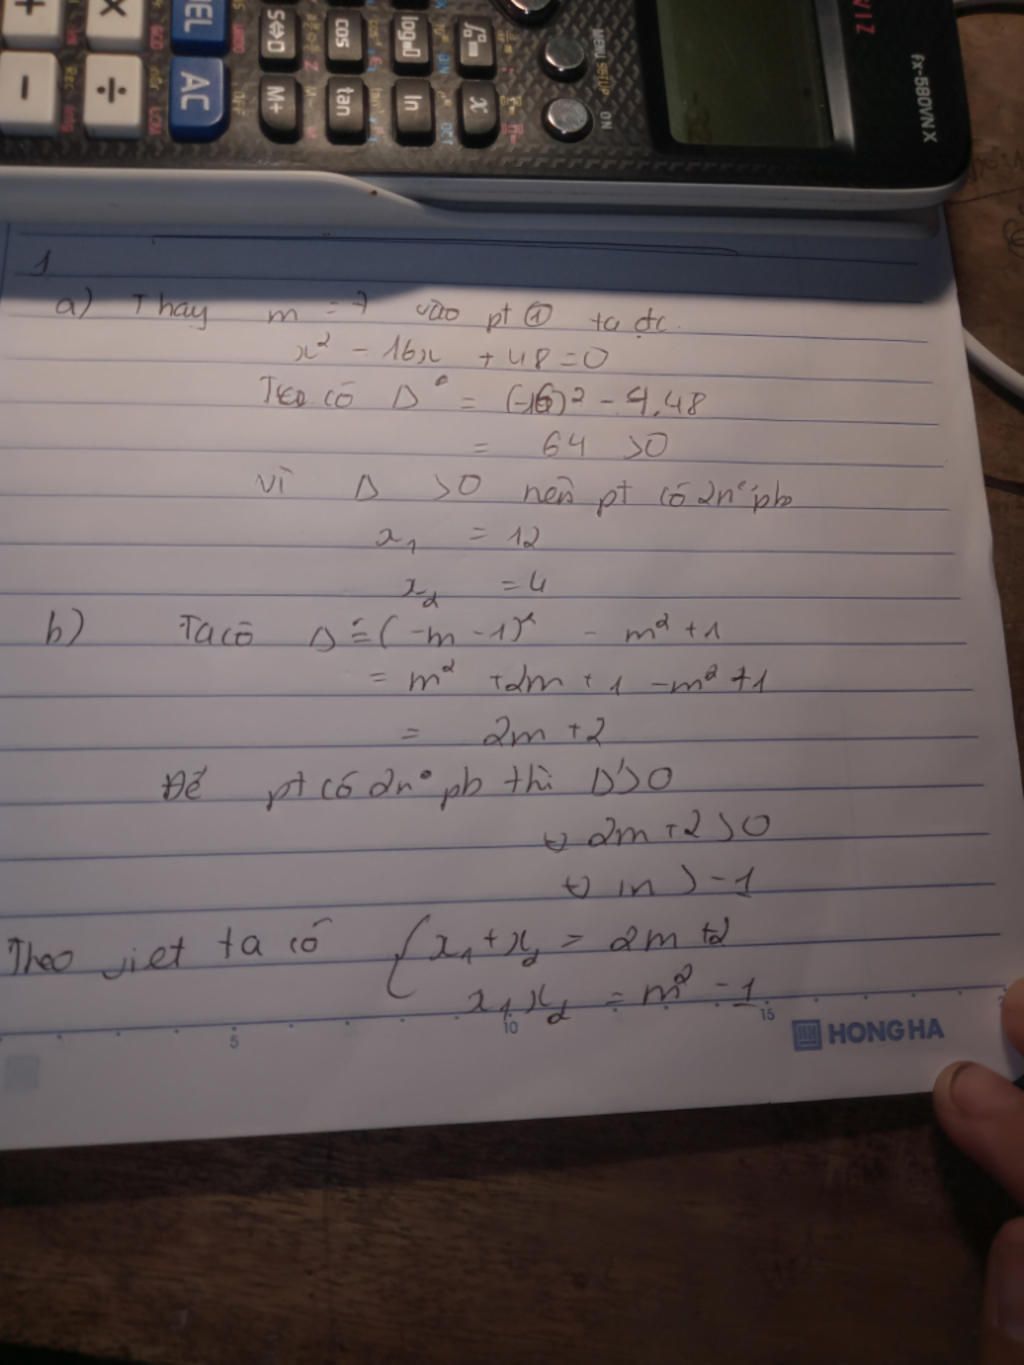 fx-580VNX
MENU SETUP
ON
DEL
AC
S⇔D
M+
cos
tan
ln
x
1
a) Thay m = 7 vào pt ① ta đc
x² - 16x + 48 = 0
Ta có Δ = (-16)² - 4.48
= 64 >0
vì Δ >0 nên pt có 2n° pb
x₁ = 12
x₂ = 4
b) Ta có Δ' = (-m -1)² - m² + 1
= m² +2m + 1 -m² +1
= 2m +2
Để pt có 2n° pb thì Δ'>0
⇔ 2m +2 >0
⇔ m > -1
Theo viet ta có { x₁ + x₂ = 2m +2
x₁ x₂ = m² - 1
5 10 15
HONG HA